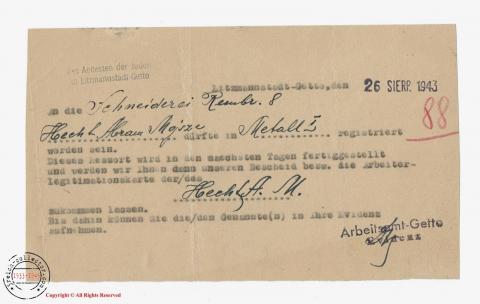 des Aeltesten der Juden
in Litzmannstadt-Getto
Litzmannstadt-Getto, den 26 SIERP. 1943
An die Schneiderei Rembr. 8
88
Hecht Abram Mojsze dürfte in Metall I registriert
worden sein.
Dieses Ressort wird in den nächsten Tagen fertiggestellt
und werden wir Ihnen dann unseren Bescheid bezw. die Arbeiter-
legitimationskarte der/des
Hecht A. M.
zukommen lassen.
Bis dahin können Sie die/den Genannte(n) in Ihre Evidenz
aufnehmen.
Arbeitsamt-Getto
1933-1945
Copyright © All Rights Reserved